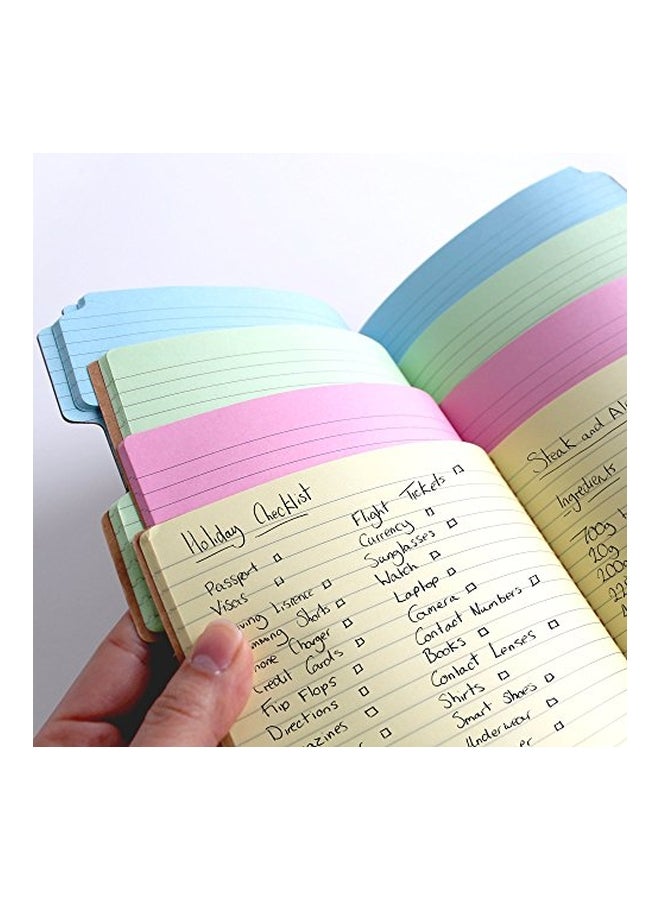 Holiday Checklist
Passport
Visas
ving Lisrence
mming Shorts
hone Charger
Credit Cards
Flip Flops
Directions
azines
Flight Tickets
Currency
Sunglasses
Watch
Laptop
Camera
Contact Numbers
Books
Contact Lenses
Shirts
Smart Shoes
Underwear
Steak and Al
Ingredients
700g
20g
200g